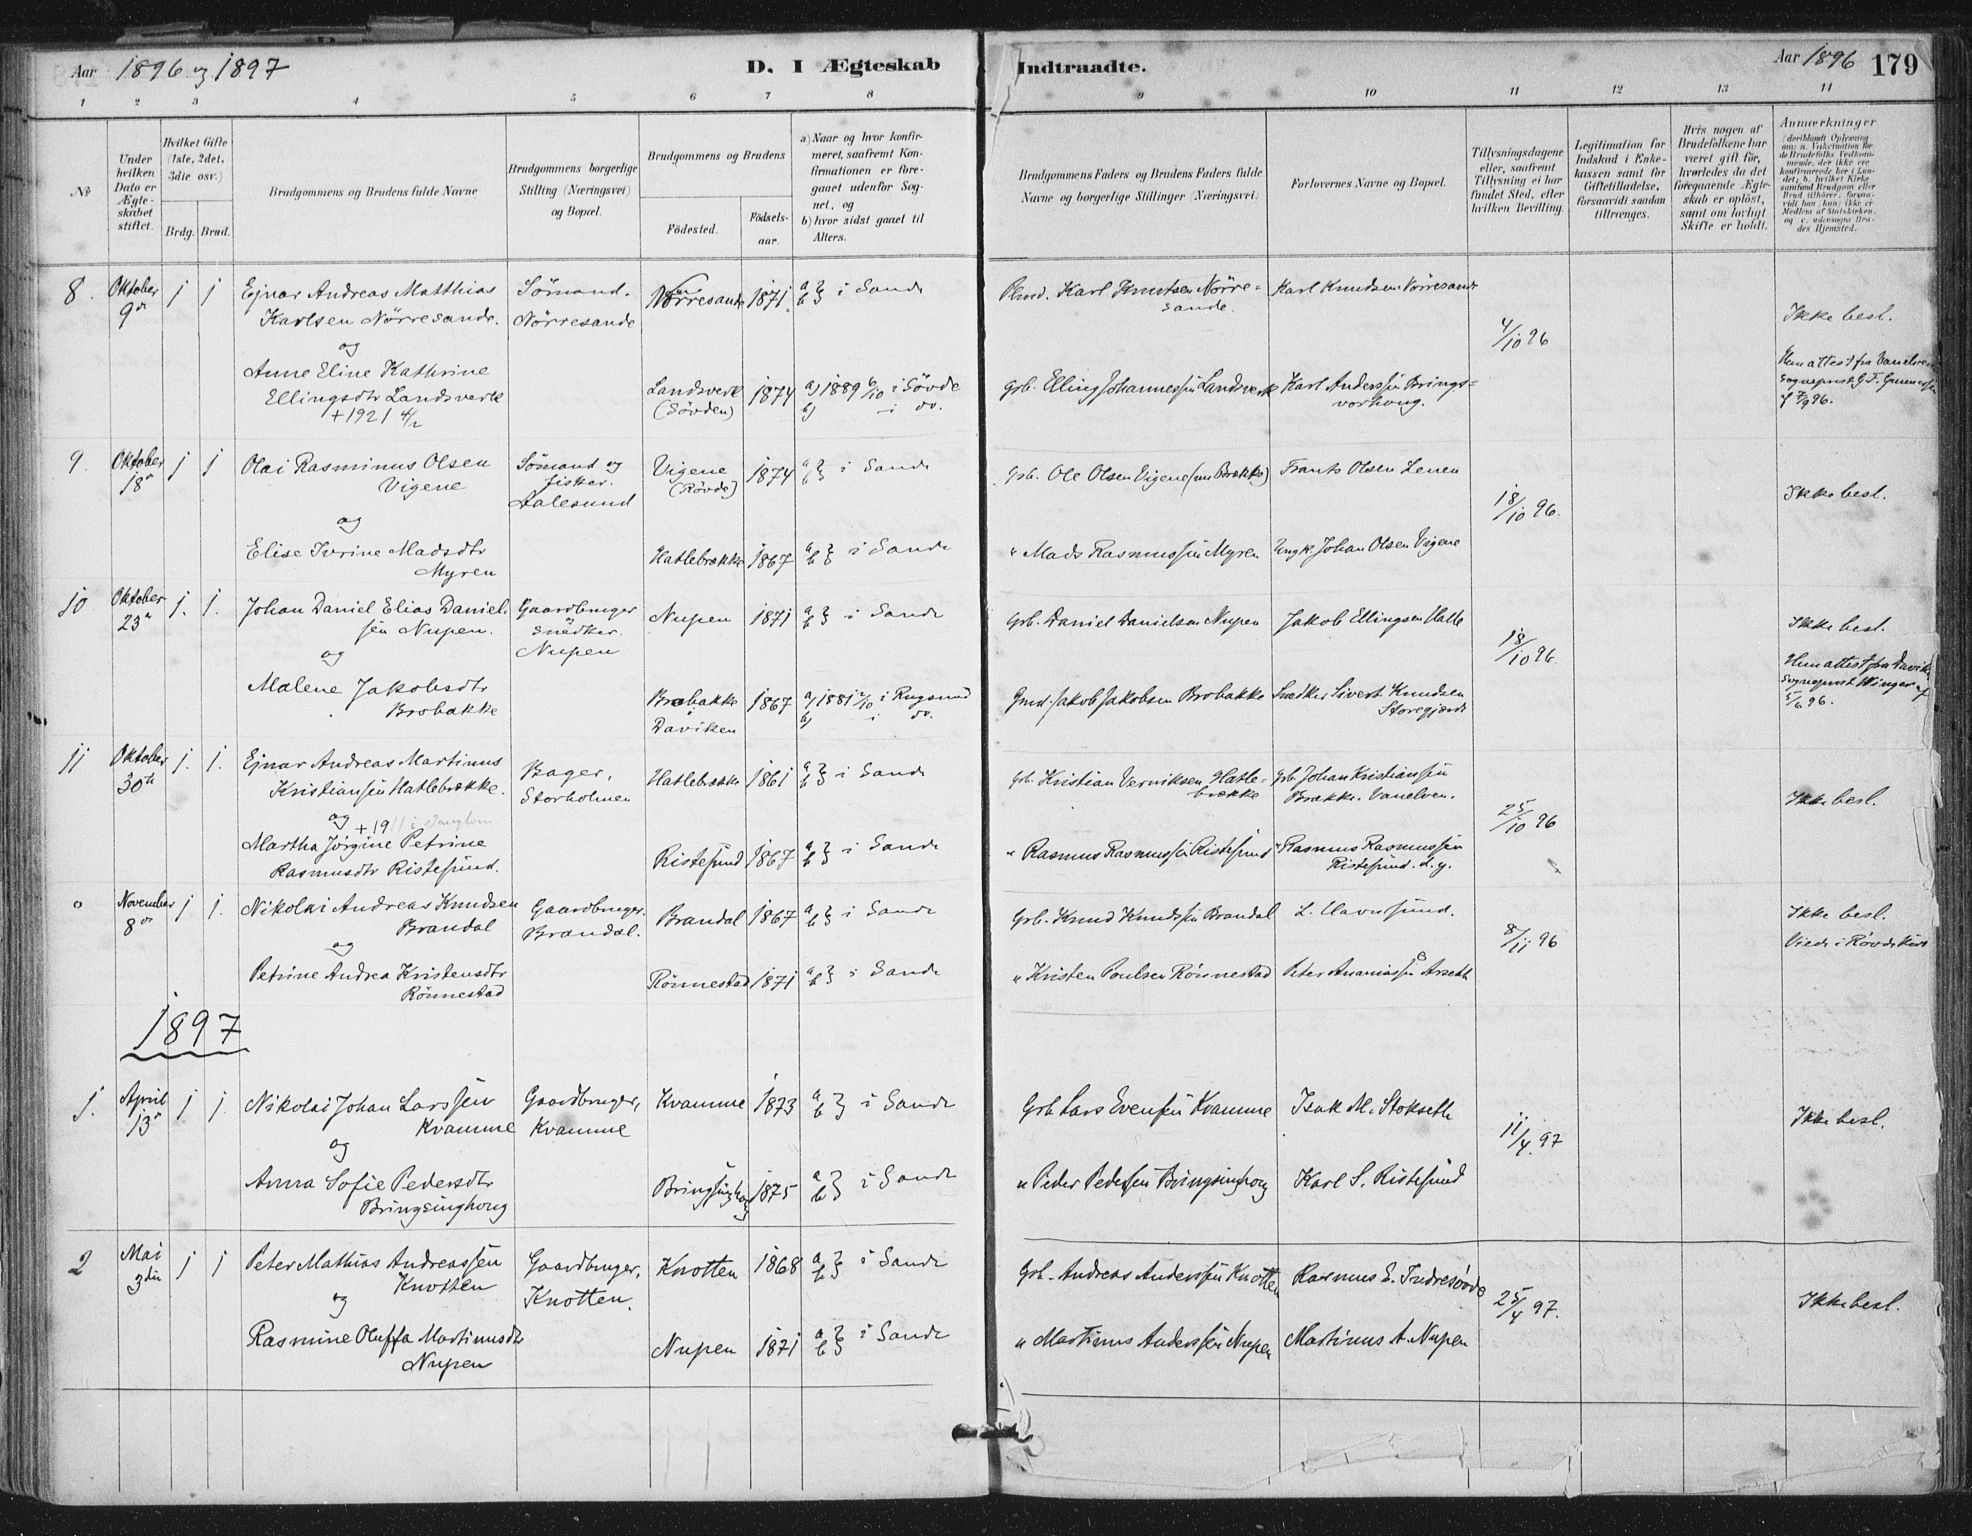 Aar 1896 og 1897
D. I Ægteskab Indtraadte.
Aar 1896 179
1 2 3 4 5 6 7 8 9 10 11 12 13 14
No
Under hvilken Dato er Ægteskabet stiftet.
Hvilket Gifte (1ste, 2det, 3die osv.)
Brdg. Brud.
Brudgommens og Brudens fulde Navne
Brudgommens borgerlige Stilling (Næringsvei) og Bopæl.
Brudgommens og Brudens
Födested.
Födselsaar.
a) Naar og hvor konfirmeret, saafremt Konfirmationen er foregaaet udenfor Sognet, og
b) hvor sidst gaaet til Alters.
Brudgommens Faders og Brudens Faders fulde Navne og borgerlige Stillinger (Næringsvei).
Forlovernes Navne og Bopæl.
Tillysningsdagene eller, saafremt Tillysning ei har fundet Sted, efter hvilken Bevilling.
Legitimation for Indskud i Enkekassen samt for Giftetilladelse, forsaavidt saadan tiltrænges.
Hvis nogen af Brudefolkene har været gift för, hvorledes da det foregaaende Ægteskab er oplöst, samt om lovligt Skifte er holdt.
Anmærkninger
8. Oktober 9de 1 1 Ejnar Andreas Matthias Karlsen Nörresande. Sömand. Nörresande Nörresande 1871. a) b) i Sande Karl Knutsen Nörresande. Karl Knudsen Nörresande 4/10 96 Ikke besl.
og
Anne Eline Kathrine Ellingsdtr Landsverk +1921 Landsverk (Sövden) 1874 a) 1889 6/10 i Sövde b) i do. Grb. Elling Johannessen Landsverk Karl Anderssen Hun attest fra Vanelven
9. Oktober 18de 1 1 Olai Rasminus Olsen Vigene Sömand og fisker. Aalesund Vigene (Rövde) 1874 a) b) i Sande Grb. Ole Olsen Vigene Frants Olsen Lenen 18/10 96. Ikke besl.
og
Elise Ivrine Madsdtr Myren Hatlebrække 1867 a) b) i Sande " Mads Rasmussen Myren Ungk. Johan Olsen Vigene
10 Oktober 23de 1. 1. Johan Daniel Elias Danielsen Nupen. Gaardbruger Snedker. Nupen Nupen 1871 a) b) i Sande Grb. Daniel Danielsen Nupen Jakob Ellingsen Hatle 18/10 96. Ikke besl.
og
Malene Jakobsdtr Brobakke Brobakke Daviken 1867 a) 1881 2/10 i Rugsund b) i do. Gmd. Jakob Jakobsen Brobakke Snedker Sivert Knudsen Storegjerde Hun attest fra Davik Sogneprest Winger af 5/6 96.
11 Oktober 30te 1. 1. Ejnar Andreas Martinus Kristiansen Hatlebrække. Bager, Storholmen Hatlebrække 1861 a) b) i Sande Grb. Kristian Henriksen Hatlebrække Grb. Johan Kristiansen Brække. Vanelven. 25/10 96 Ikke besl.
og +19
Martha Jörgine Petrine Rasmusdtr Ristesund. Ristesund 1867 a) b) i Sande " Rasmus Rasmussen Ristesund " Rasmus Rasmussen Ristesund. d. y.
November 8de 1 1. Nikolai Andreas Knudsen Brandal Gaardbruger. Brandal. Brandal 1867 a) b) i Sande Grb. Knud Knudsen Brandal L. Havnsund. 8/11 96 Ikke besl.
og
Petrine Andrea Kristensdtr Rönnestad Rönnestad 1871 a) b) i Sande " Kristen Poulsen Rönnestad Peter Ananiassen Årseth Viede i Rövde Kirke
1897
1. April 13de 1 1. Nikolai Johan Larssen Kvamme Gaardbruger, Kvamme Kvamme 1873 a) b) i Sande Grb. Lars Evensen Kvamme Isak M. Stokseth 11/4 97 Ikke besl.
og
Anna Sofie Pedersdtr Bringsinghoug Bringsinghoug 1875 a) b) i Sande " Peder Pedersen Bringsinghoug Karl S. Ristesund
2 Mai 3die 1 1 Peter Mathias Andreassen Knotten Gaardbruger, Knotten. Knotten 1868 a) b) i Sande Grb. Andreas Anderssen Knotten Rasmus E. Indresövde 25/4 97. Ikke besl.
og
Rasmine Oluffa Martinusdtr Nupen Nupen 1871 a) b) i Sande " Martinus Anderssen Nupen Martinus A. Nupen